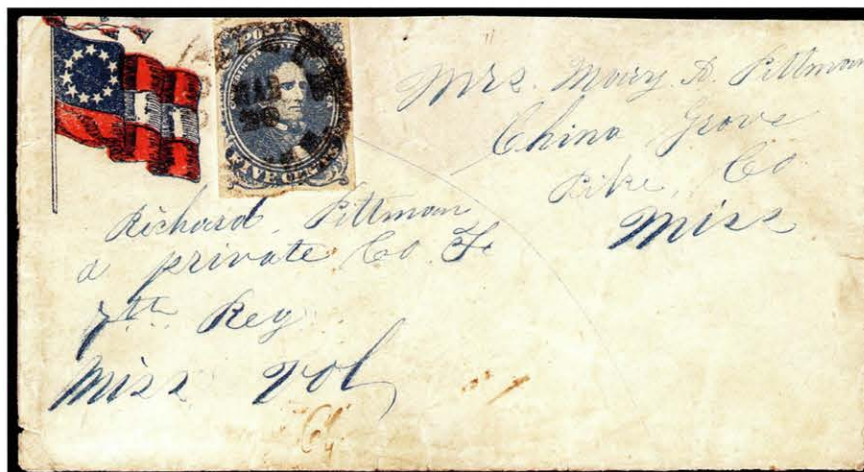 FIVE CENTS
Mrs. Mary A. Pittman
China Grove
Pike, Co
Miss
Richard. Pittman
a private Co
7th Reg
Miss Vol